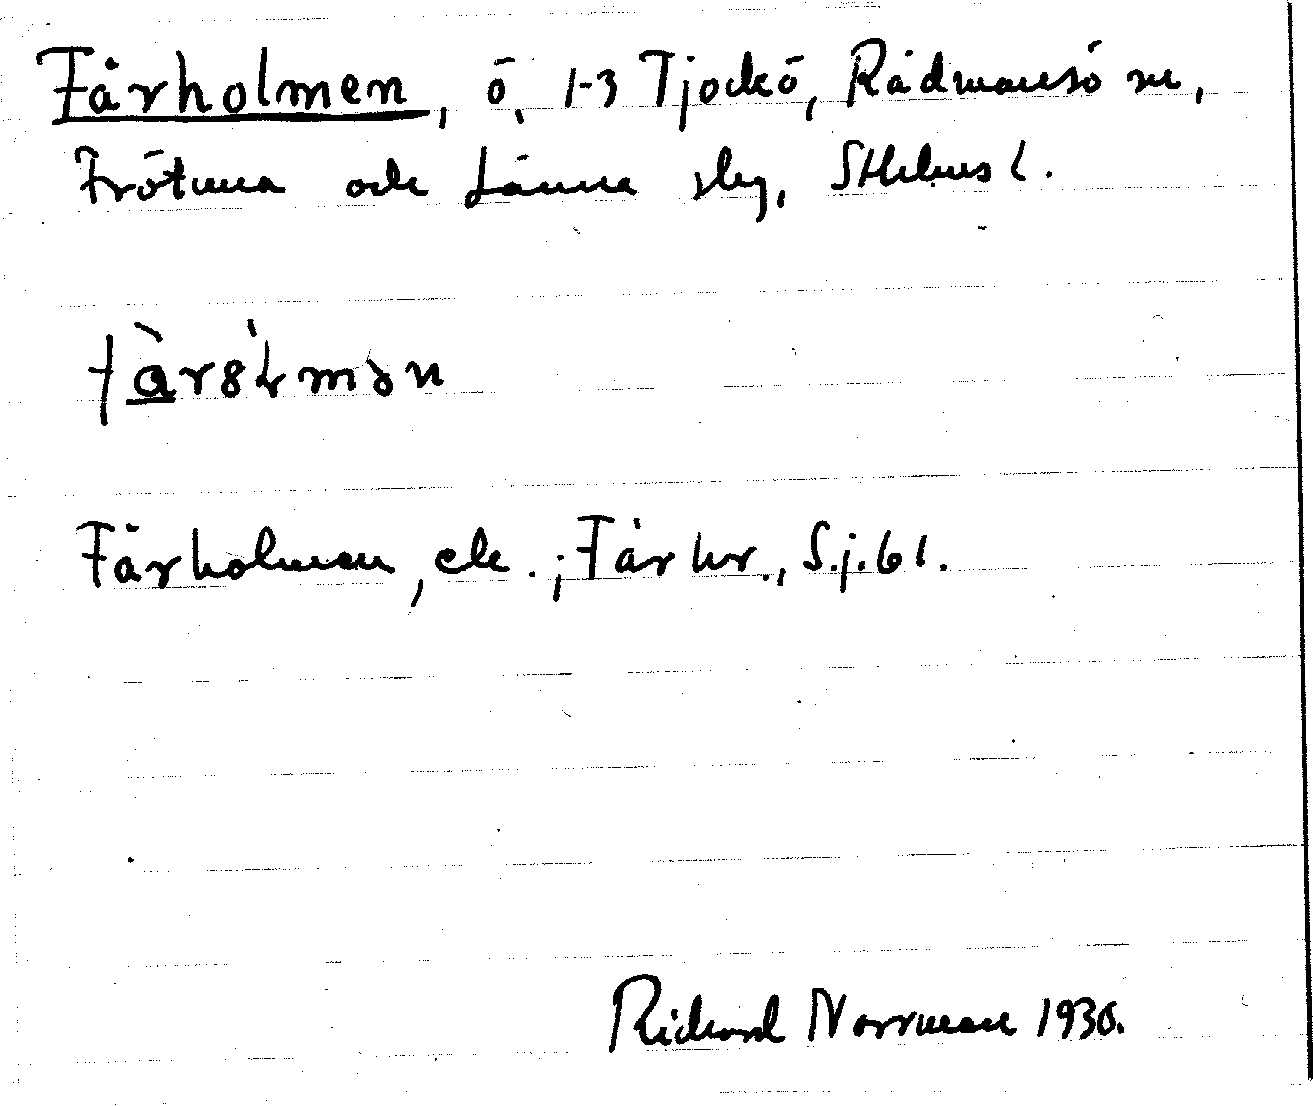 Fårholmen, ö, 1-3 Tjockö, Rådmansö sn,
Frötuna och Länna slg, Sthlms l.
Fårholmen, ek.; Fårhr., S.j.61.
Richard Norrman 1930.